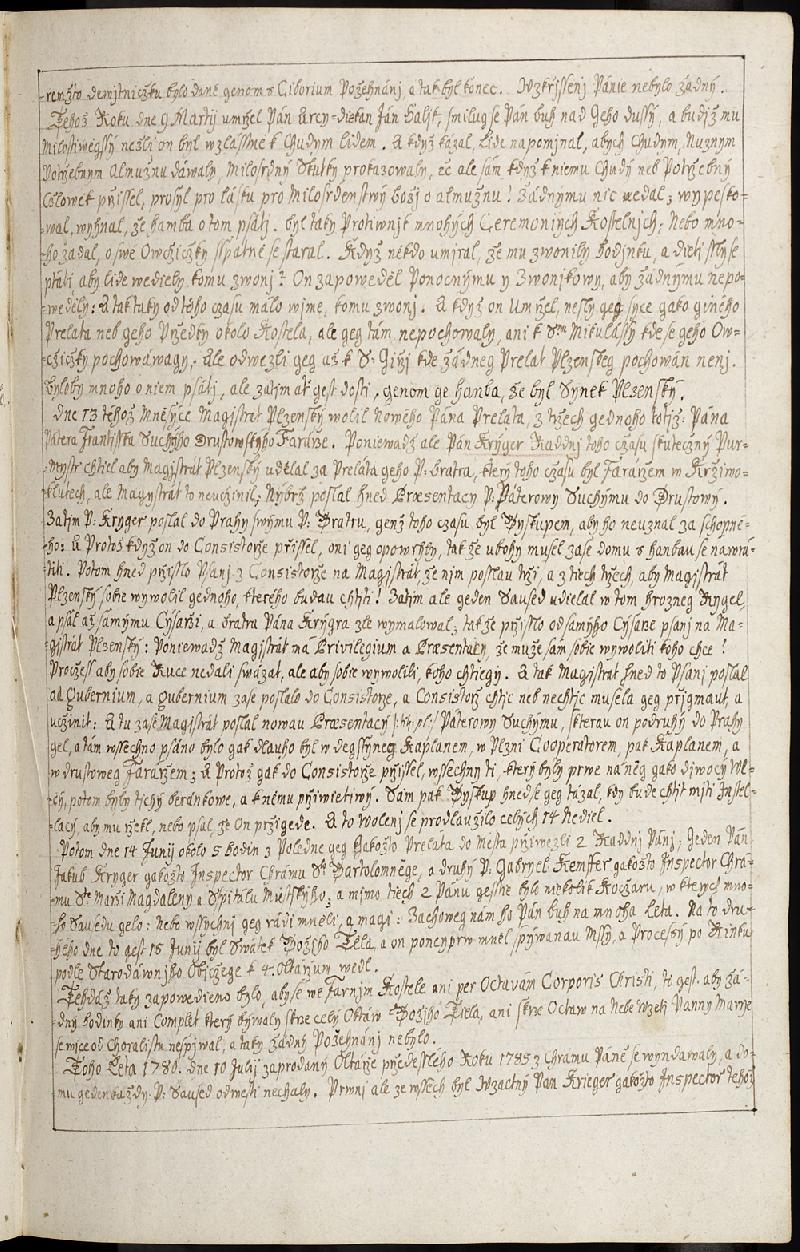 -renžto dewjtniczku bylo dané genom s Ciborium Požehnánj, a tak byl konec. Wzkřjssenj Pánie nebylo žádný.
Tehož Roku dne 9 Martij umřel Pán Arcy-diekan Ján Halít, smilug se Pán buh nad Geho dussý, a budiž mu
Milostiwěgssý nežli on byl wzlásstně k Chudým lidem. A když kázal, Lide napomjnal, abých Chudým, Nuzným
Potřebným Almužnu dáwaly, Milosrdný Skutky prokazowaly, ec ale sám když k niemu Chudý neb Potřebný
Cžlowěk přissel, prosyl pro lásku pro Milosrdenstwý boží o almužnu! Žádnýmu nic nedal, wypesko-
wal, wyhnal, že hamba o tom psáti. byl taky Protiwnjk mnohých Ceremonijch Kostelnjch, Nebo mno-
ho žádal, o swe Owcžicžky sspatně se staral. Když nekdo umjral, že mu zwonily hodjnku, a dietj slyšse
ptáti aby lide wedieli, komu zwonj? On zapowedel Ponocnýmu y Zwonjkowy, aby žádnýmu nepo-
wedely: A tak taky od toho času málo wjme, komu zwonj. A když on Umřel, nesly geg syce gako giného
Prelata neb geho Předky okolo Kostela, ale geg tám nepochowaly, ani k Stm Mikulássý kde se geho Ow-
cžicžky pochowáwagj. Ale odwezli geg až k S. Giřj kde žádneg Prelat Plzenskeg pochowán nenj.
byloby mnoho o niem psáti, ale zatjm ať gest dosti, genom ge hanba, že byl Synek Plzenský.
Dne 13 tehož Měsýce Magistrát Plzenský wolil nowého Pána Prelata, z třech gednoho totiž: Pána
Pátera Frantisska Suchýho Drustowskýho Farářze. Poniewadž ale Pán Krýger Raddnj toho cžasu skutecžný Pur-
-mystr chtiel aby Magistrát Plzenský udělal za Preláta geho P: bratra, ktery toho cžasu byl Farářzem w Kržiwo-
-klutech, ale Magystrát to neucžinil; Nýbrž poslal hned Præsentacy P: Páterowy Suchýmu do Drustowy.
Zatjm P: Kryger poslal do Prahy swýmu P: Bratru, genž toho cžasu byl Byskupem, aby ho neuznal za schopné-
ho: A Protož když on do Consistorže přissel, oni geg opowrhly, tak že ubohý musel zase domu s hanbau se nawrá-
titi. Potom hned přisslo Psanj z Consistorže na Magistrát že nim posslau trži, a z tiech tržech, aby Magistrát
Plzenský sobie wywolil gednoho, kterého budau chtiti! Zatjm ale geden Saused udielal w tom hrozneg Rygel,
a psal až samýmu Cýsařzi, a bratra Pána Krýgra zle wymalowal; tak že přisslo od samýho Cýsaře psanj na Ma-
gistrát Plzenský: Poniewadž Magistrát má Privilegium a Præsentaty, že muže sam sobie wywoliti koho chce!
Procžežl aby sobie Ruce nedali swázat, ale aby sobie wywolili, koho chtiegj. A tak Magistrát hned to Psanj poslal
ad Gubernium, a Gubernium zase poslalo do Consistorže, a Consistorž chtic neb nechtic musela geg přigmaut, a
ucžinit: A tu zase Magistrát poslal nowau Præsentacý Páterowy Suchýmu, s kterau on podruhý do Prahy
gel, a tám wssechno psáno bylo gak dlauho byl w degstýneg Kaplanem, w Plzni Cooperatorem, pak Kaplanem, a
w drustoweg Farářzem; A Protož gak do Consistorže přissel, wssechny ti, který byly prwe na něg gako diwocý Wl-
cý, potom byly tichý beránkowe, a k němu přiwietiwý. Sám pak Byskup hned se geg tázal, kdy bude chtit mjti Instel-
lacý, aby mu řekl, nebo psal, že On přigede. A to Wolenj se prodlaužilo celých 14 Nediel.
Potom dne 14 Junij okolo 5 hodin z Poledne geg gakožto Preláta do Města přiwezli 2 Raddnj Pánj, Geden Pan
Jakub Kryger gakožto Inspector Chrámu St Bartolomnege, a druhý P: Gabryel Kemffer gakožto Inspector Chrá-
mu St Marži Magdaleny a Spitálu Městskýho; a mimo tiech 2 Pánu gesstie bylo niekolik Kocžaru, w kterých mno-
ho Sausedu gelo: Nebo wssychnj geg rádi mněli, a magj: Zachoweg nám ho Pán buh na mnoha Leta. Na to dru-
hého dne, to gest 15 Junij byl Swátek Božjho Tiela, a on ponejprw mněl spýwanau Mssý, a Procesý po Rinku
podle Starodáwnjho Obicžege k 4. Oltářžum wedl.
Tehdáž taky zapowedieno bylo, aby se we Farnjm Kostele ani per Octavám Corporis Christi, to gest. aby žá-
dný hodinky ani Complet který býwaly skrze celý Oktáw Božjho Tiela, ani skrz Octaw na Nebe wzetj Panny Marye
se wjce od Choralistu nespjwal, a taky žádný Požehnánj nebylo.
Toho Leta 1786. dne 10 Julij zaprodaný Oltáře předesslého Roku 1785 z Chramu Páně se wyndawaly, a do-
mu gedenkaždý P: Saused odwesti nechaly. Prwnj ale ze wssech byl Wzactný Pan Krieger gakožto Inspector tehož